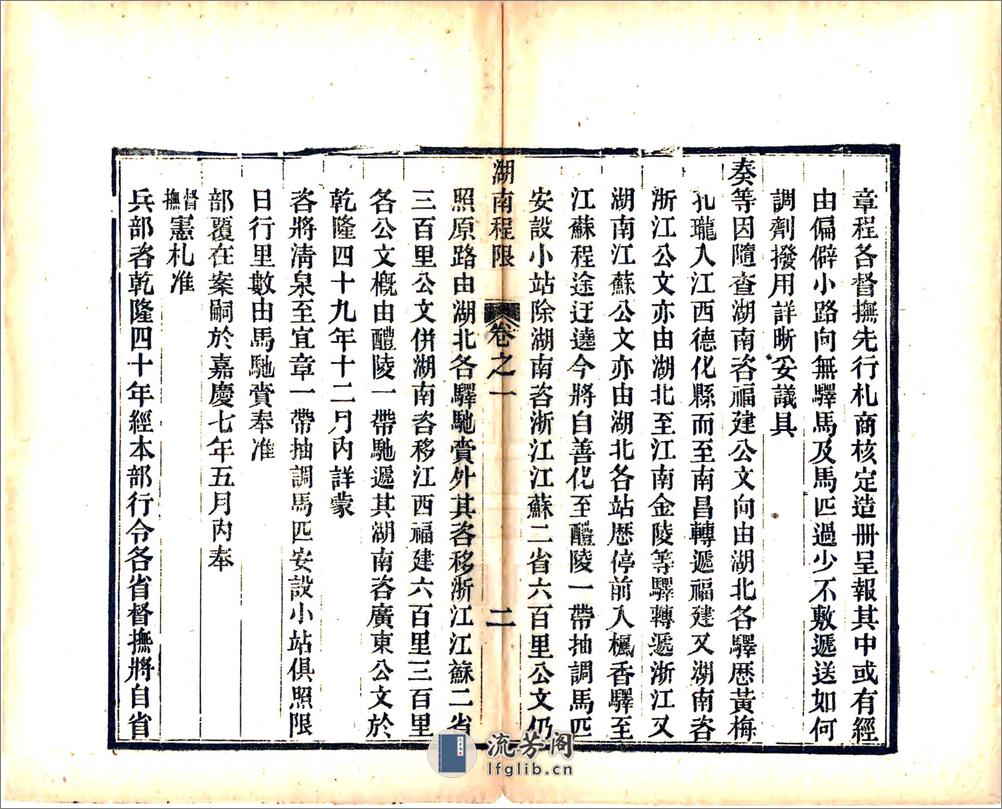 章程各督撫先行札商核定造册呈報其中或有經
由偏僻小路向無驛馬及馬匹過少不敷遞送如何
調劑撥用詳晰妥議具
奏等因隨查湖南咨福建公文向由湖北各驛歷黃梅
孔瓏入江西德化縣而至南昌轉遞福建又湖南咨
浙江公文亦由湖北至江南金陵等驛轉遞浙江又
湖南江蘇公文亦由湖北各站歷停前入楓香驛至
江蘇程途迂遶今將自善化至醴陵一帶抽調馬匹
安設小站除湖南咨浙江江蘇二省六百里公文仍
湖南程限 卷之一 二
照原路由湖北各驛馳賫外其咨移浙江江蘇二省
三百里公文併湖南咨移江西福建六百里三百里
各公文概由醴陵一帶馳遞其湖南咨廣東公文於
乾隆四十九年十二月內詳蒙
咨將清泉至宜章一帶抽調馬匹安設小站俱照限
日行里數由馬馳賫奉准
部覆在案嗣於嘉慶七年五月內奉
督撫憲札准
兵部咨乾隆四十年經本部行令各省督撫將自省
流芳阁
lfglib.cn